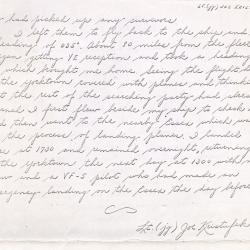 Lt.(jg) JOE KRIS
had picked up any survivors.
I left them to fly back to the ship and
heading of 035°. About 10 miles from the fleet
began getting YE reception and took a heading
which brought me home. Seeing the flight deck
the Yorktown covered with planes and thinking
that the rest of the searching party had also
landed I first flew beside our ship to check
and then went to the nearby Essex which was
the process of landing planes. I landed
at 1730 and remained overnight, returning
the Yorktown the next day at 1300 with
and a VF-5 pilot who had made an
emergency landing on the Essex the day before.
Lt.(jg) Joe Kristufek